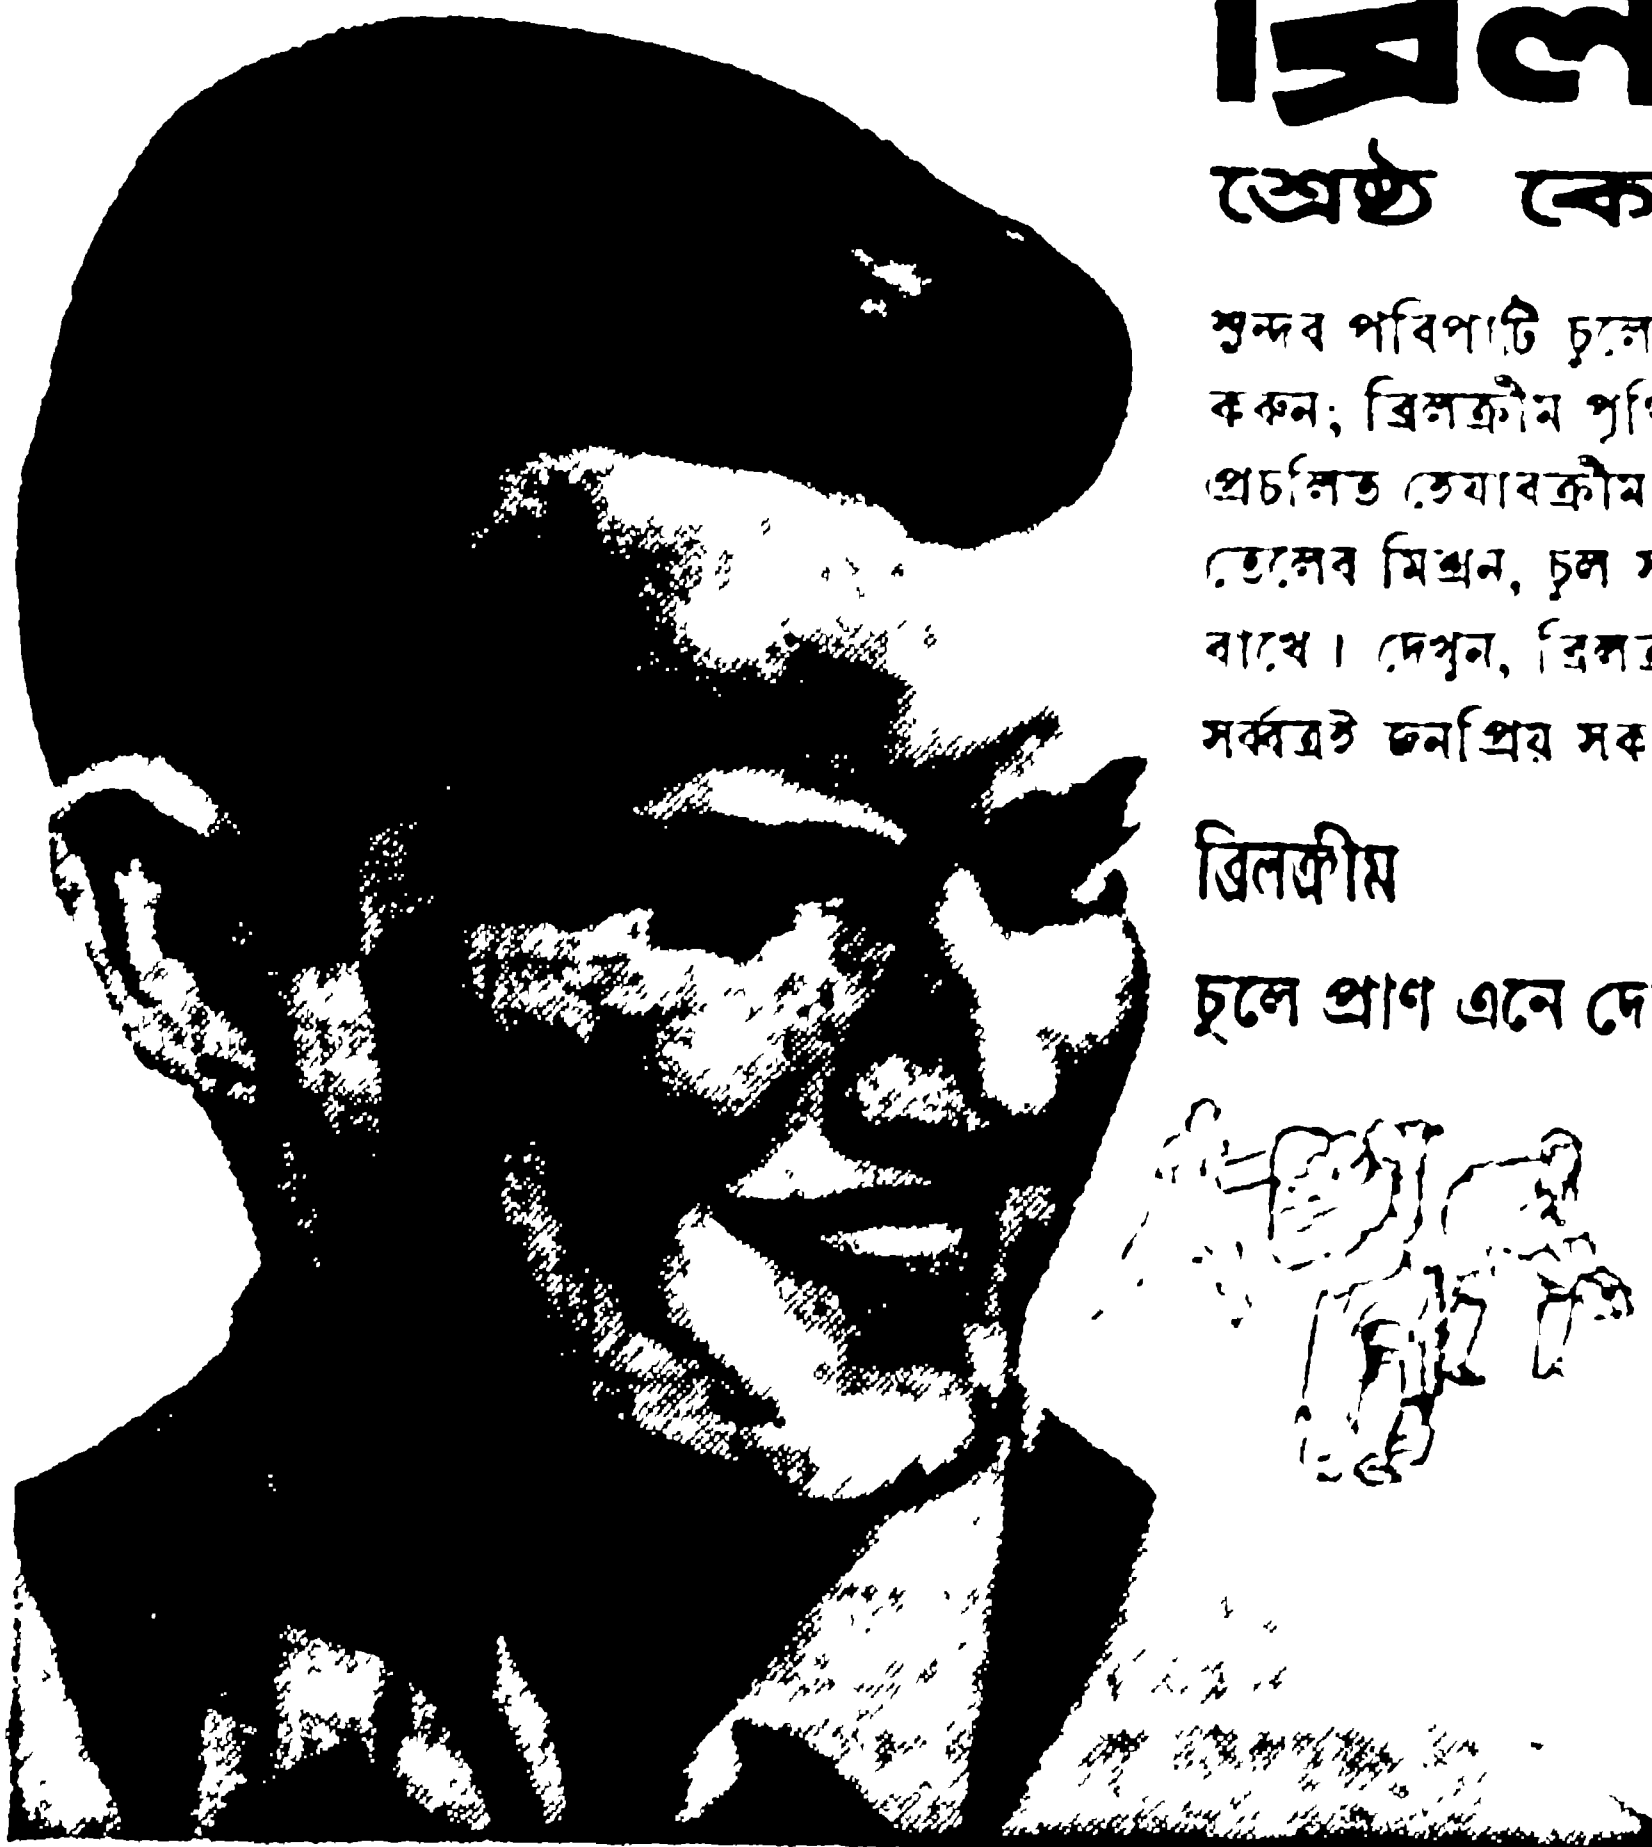 ব্রিল
শ্রেষ্ঠ কে
সুন্দর পরিপাটি চুলে
করুন; ব্রিলক্রীম পৃথি
প্রচলিত হেযারক্রীম
তেলের মিশ্রন, চুল স
রাখে। দেখুন, ব্রিলক্র
সর্ব্বত্রই জনপ্রিয় সক
ব্রিলক্রীম
চুলে প্রাণ এনে দে